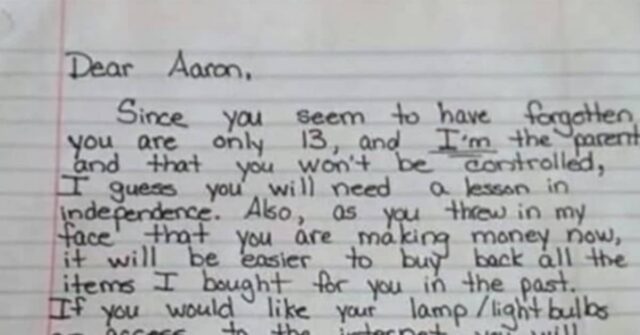 Dear Aaron,
Since you seem to have forgotten
you are only 13, and I'm the parent
and that you won't be controlled,
I guess you will need a lesson in
independence. Also, as you threw in my
face that you are making money now,
it will be easier to buy back all the
items I bought for you in the past.
If you would like your lamp/lightbulbs
access to the internet